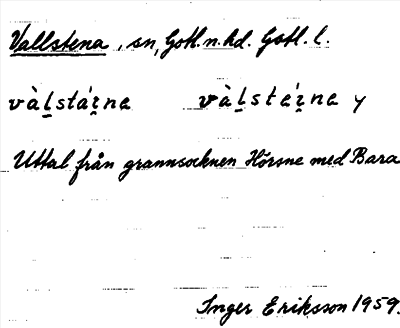 Vallstena, sn, Gotl. n. hd. Gotl. l.
và̀l̠stá̠i̠na  và̀l̠stá̠i̠na y
Uttal från grannsocknen Hörsne med Bara
Inger Eriksson 1959.